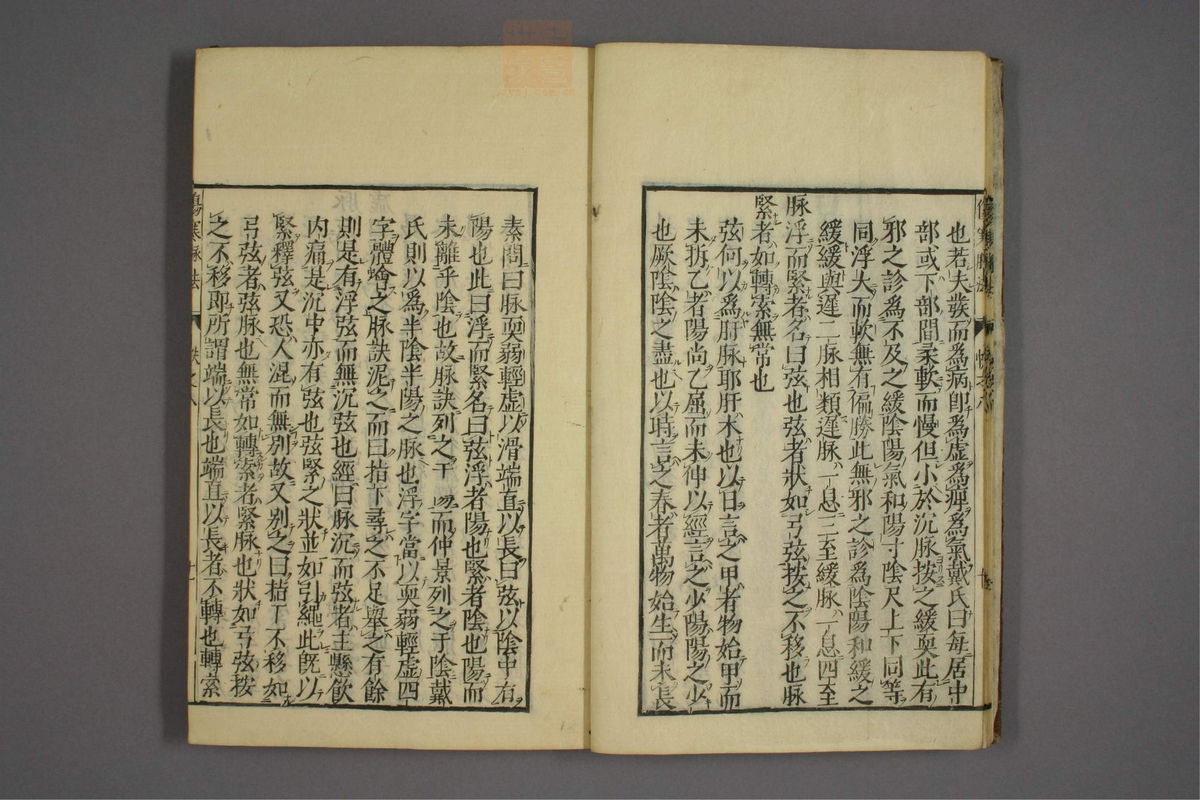 也若夫發而爲病卽爲虛爲痺爲氣戴氏曰每居中
部或下部間柔軟而慢但小於沉脉按之緩耎此有
邪之診爲不及之緩陰陽氣和陽寸陰尺上下同等
同浮大而軟無有偏勝此無邪之診爲陰陽和緩之
緩緩與遲二脉相類遲脉一息三至緩脉一息四至
脉浮而緊者名曰弦也弦者狀如弓弦按之不移也脉
緊者如轉索無常也
弦何以爲肝脉耶肝木也以日言之甲者物始甲而
未拆乙者陽尚乙屈而未伸以經言之少陽陽之少
也厥陰陰之盡也以時言之春者萬物始生而未長
素問曰脉耎弱輕虛以滑端直以長曰弦以陰中有
陽也此曰浮而緊名曰弦浮者陽也緊者陰也陽而
未離乎陰也故脉訣列之于 而仲景列之于陰戴
氏則以爲半陰半陽之脉也浮字當以耎弱輕虛四
字體會之脉訣泥之而曰指下尋之不足舉之有餘
則是有浮弦而無沉弦也經曰脉沉而弦者主懸飲
内痛是沉中亦有弦也弦緊之狀並如引繩此旣以
緊釋弦又恐人混而無别故又别之曰按之不移如
弓弦者弦脉也無常如轉索者緊脉也狀如弓弦按
之不移即所謂端以長也端直以長者不轉也轉索
傷寒脉法